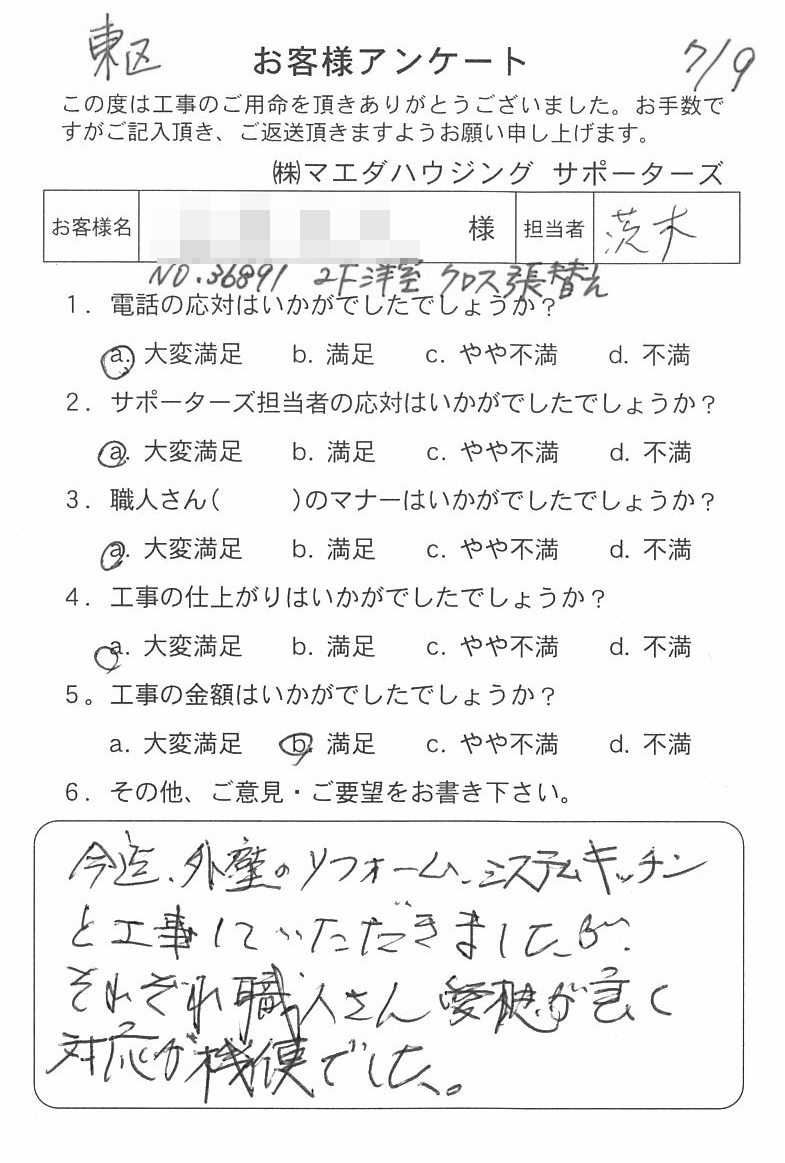 東区
お客様アンケート
7/9
この度は工事のご用命を頂きありがとうございました。お手数で
すがご記入頂き、ご返送頂きますようお願い申し上げます。
㈱マエダハウジング サポーターズ
お客様名 様 担当者 茨木
NO.36891 2F洋室 クロス張替え
1. 電話の応対はいかがでしたでしょうか?
a. 大変満足 b. 満足 c. やや不満 d. 不満
2. サポーターズ担当者の応対はいかがでしたでしょうか?
a. 大変満足 b. 満足 c. やや不満 d. 不満
3. 職人さん( )のマナーはいかがでしたでしょうか?
a. 大変満足 b. 満足 c. やや不満 d. 不満
4. 工事の仕上がりはいかがでしたでしょうか?
a. 大変満足 b. 満足 c. やや不満 d. 不満
5。工事の金額はいかがでしたでしょうか?
a. 大変満足 b. 満足 c. やや不満 d. 不満
6. その他、ご意見・ご要望をお書き下さい。
今迄、外壁のリフォーム、システムキッチン
と工事していただきましたが、
それぞれ職人さん愛想が良く
対応が機便でした。